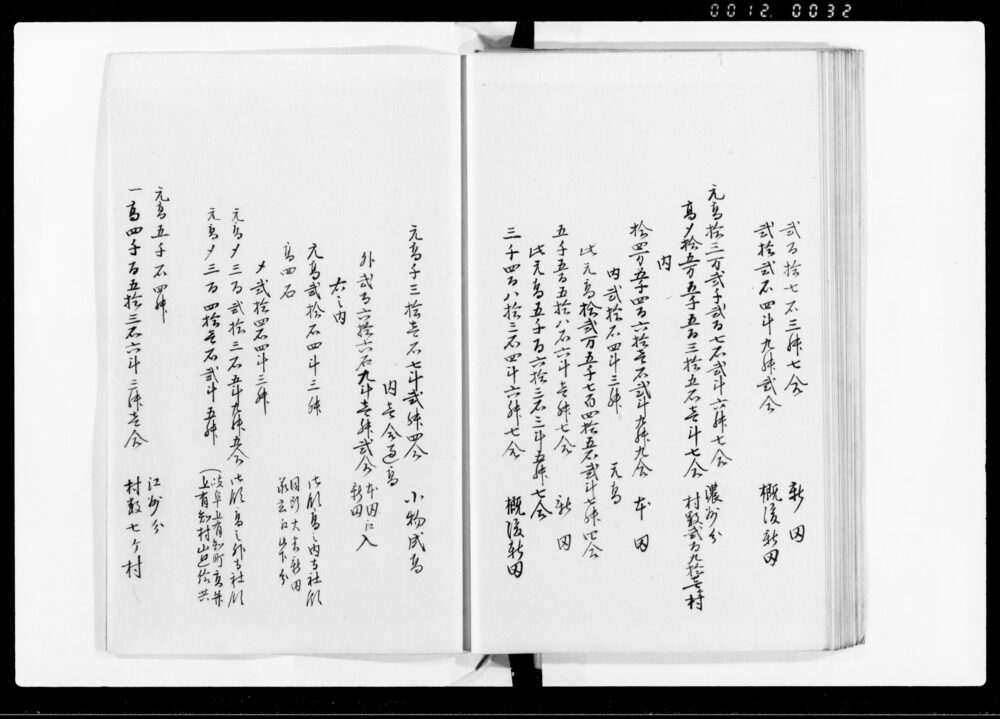 0012 0032
弐百拾七石三舛七合 新田
弐拾弐石四斗九舛弐合 概濃新田
元高拾三万弐千弐百七石弐斗六舛七合 濃州分
高〆拾五万五千五百三拾五石壱斗七合 村数弐百九拾壱村
内
拾四万五千四百六拾壱石弐斗九舛九合 本田
内弐拾石四斗三舛 元高
此元高拾弐万五千七百四拾五石弐斗七舛四合
五千五百五拾八石六斗壱舛七合 新田
此元高五千百六拾三石三斗五舛七合
三千四百八拾三石四斗六舛七合 概濃新田
元高千三拾壱石七斗弐舛四合 小物成高
内壱合過高
外弐百六拾六石九斗壱舛弐合 本田江入 新田
右之内
元高弐拾石四斗三舛 此所高之内寺社領
高四石
〆弐拾四石四斗三舛
元高〆三百弐拾三石五斗九舛五合 此所高之外寺社領
元高〆三百四拾壱石弐斗五舛
元高五千石四舛 江州分
一高四千百五拾三石六斗三舛壱合 村数七ケ村